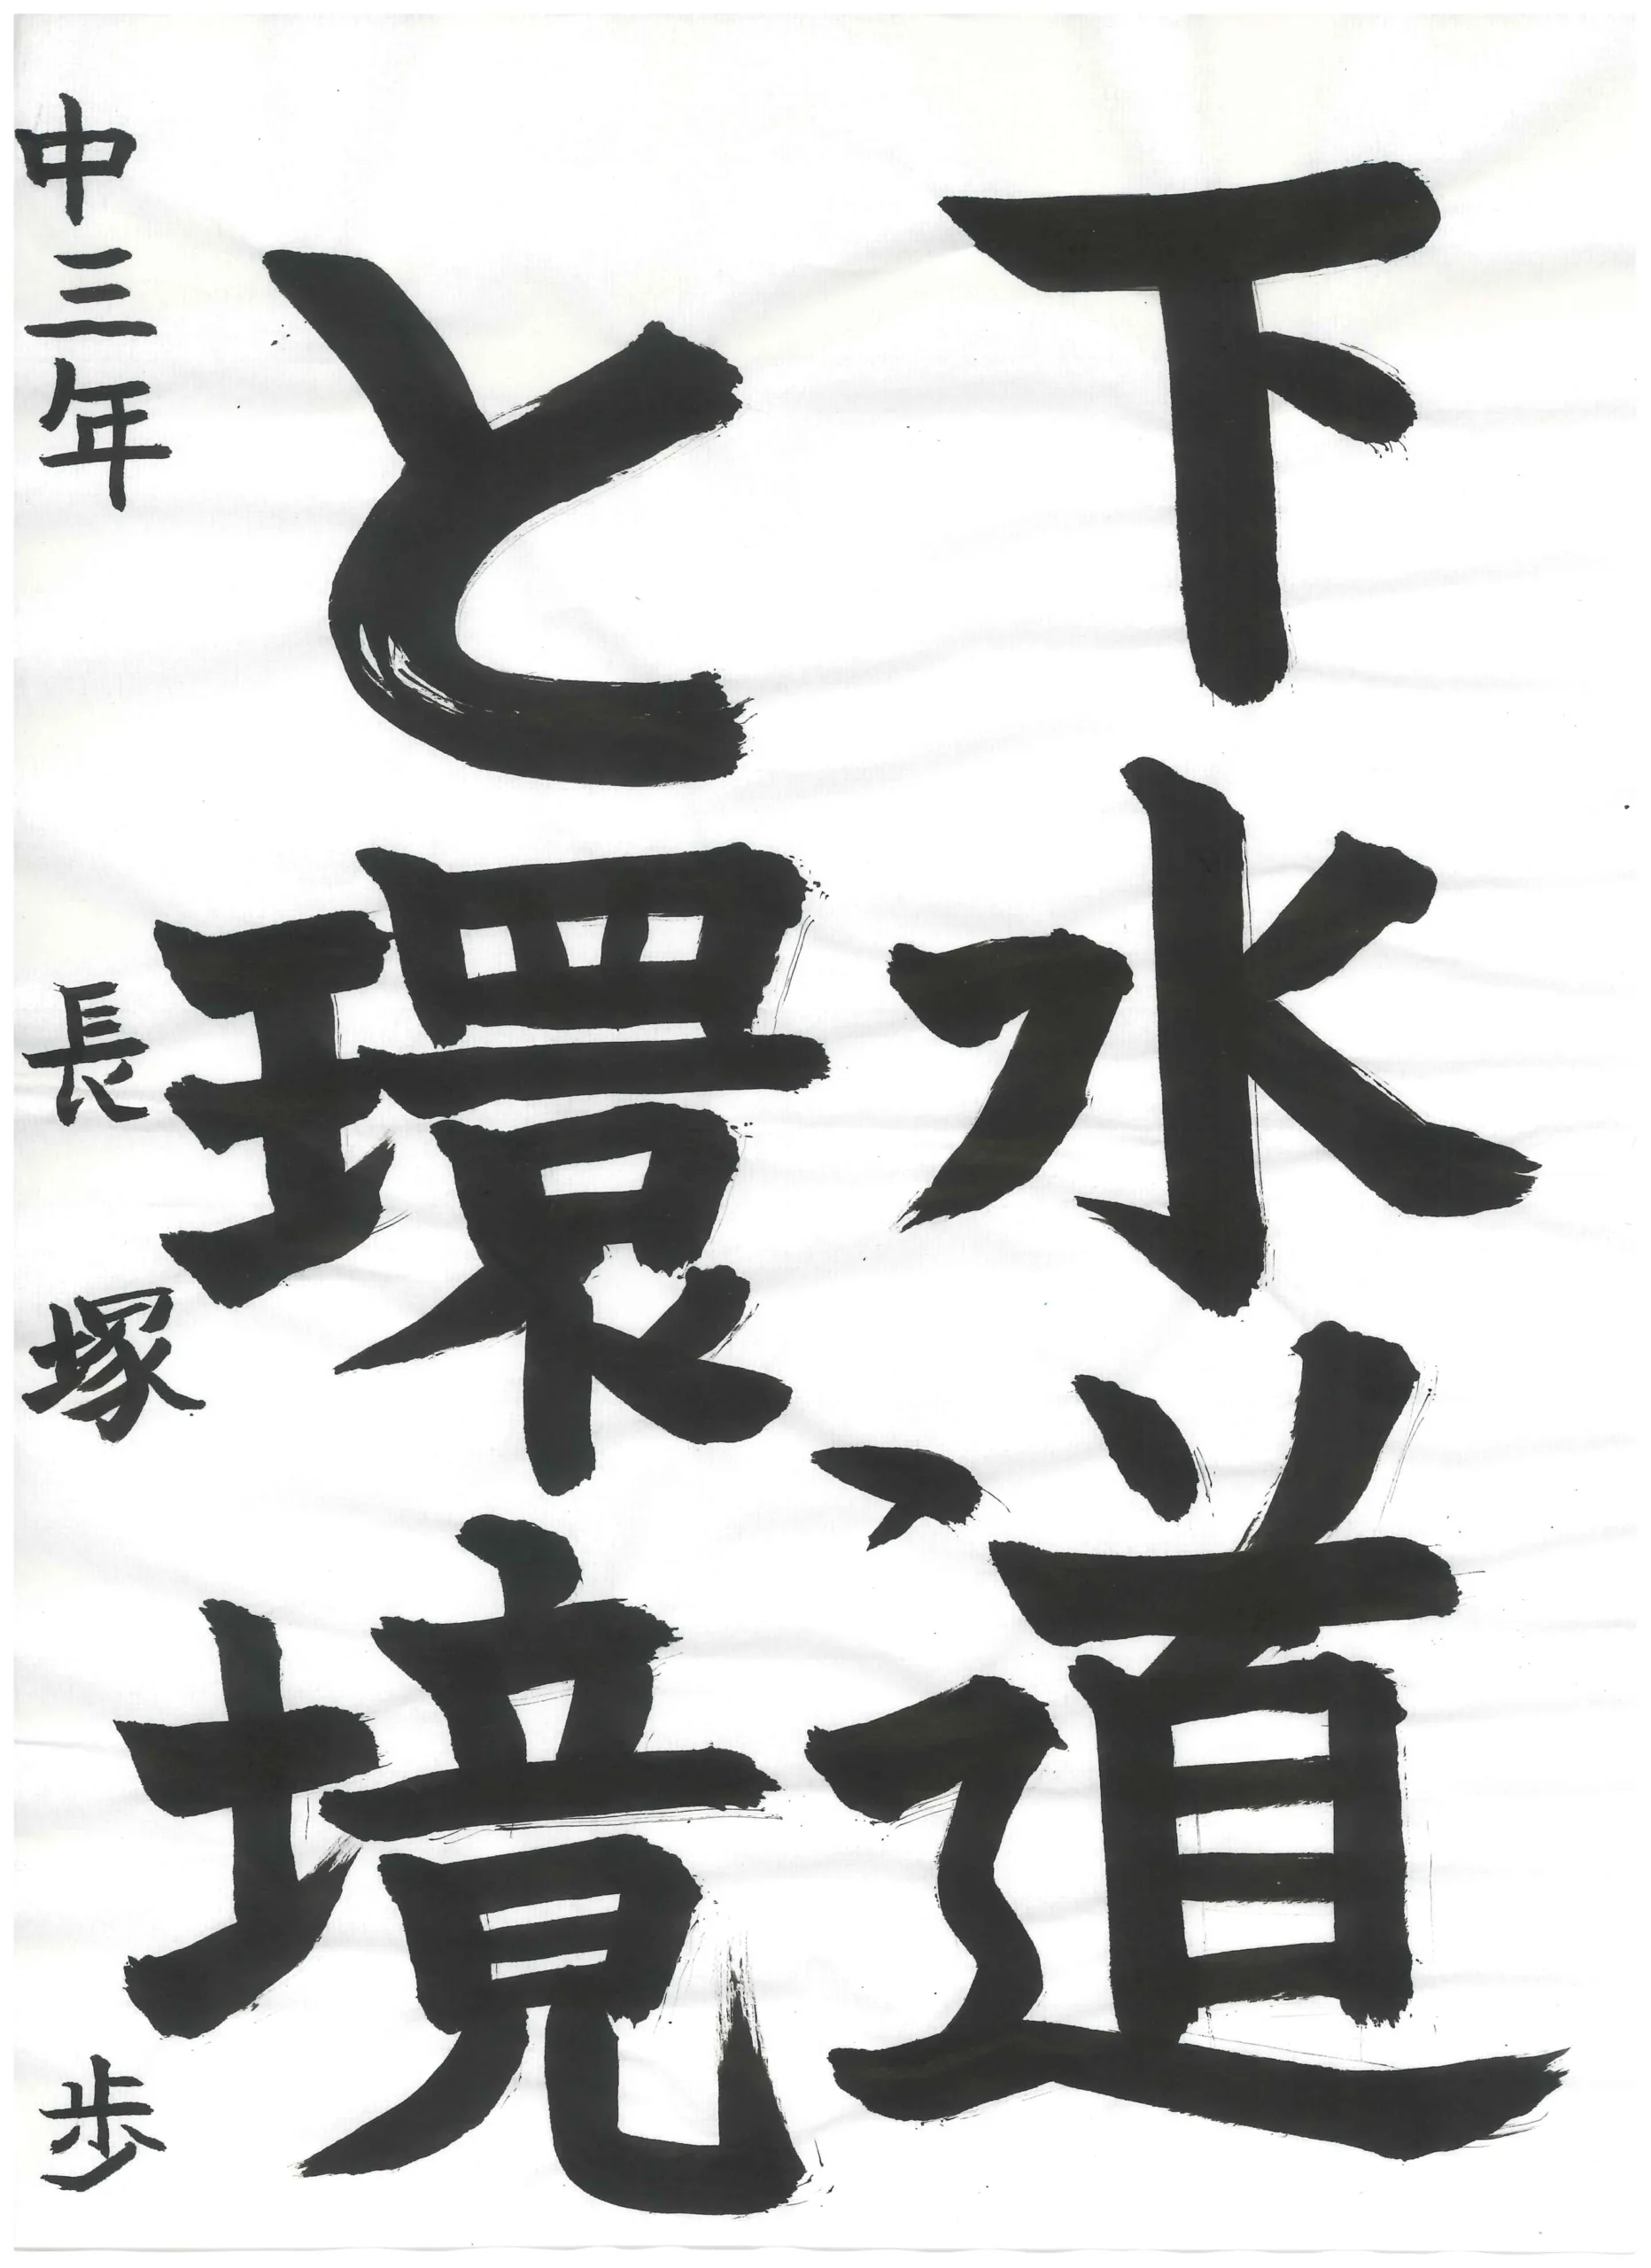 下水道
と環境
中三年 長塚歩